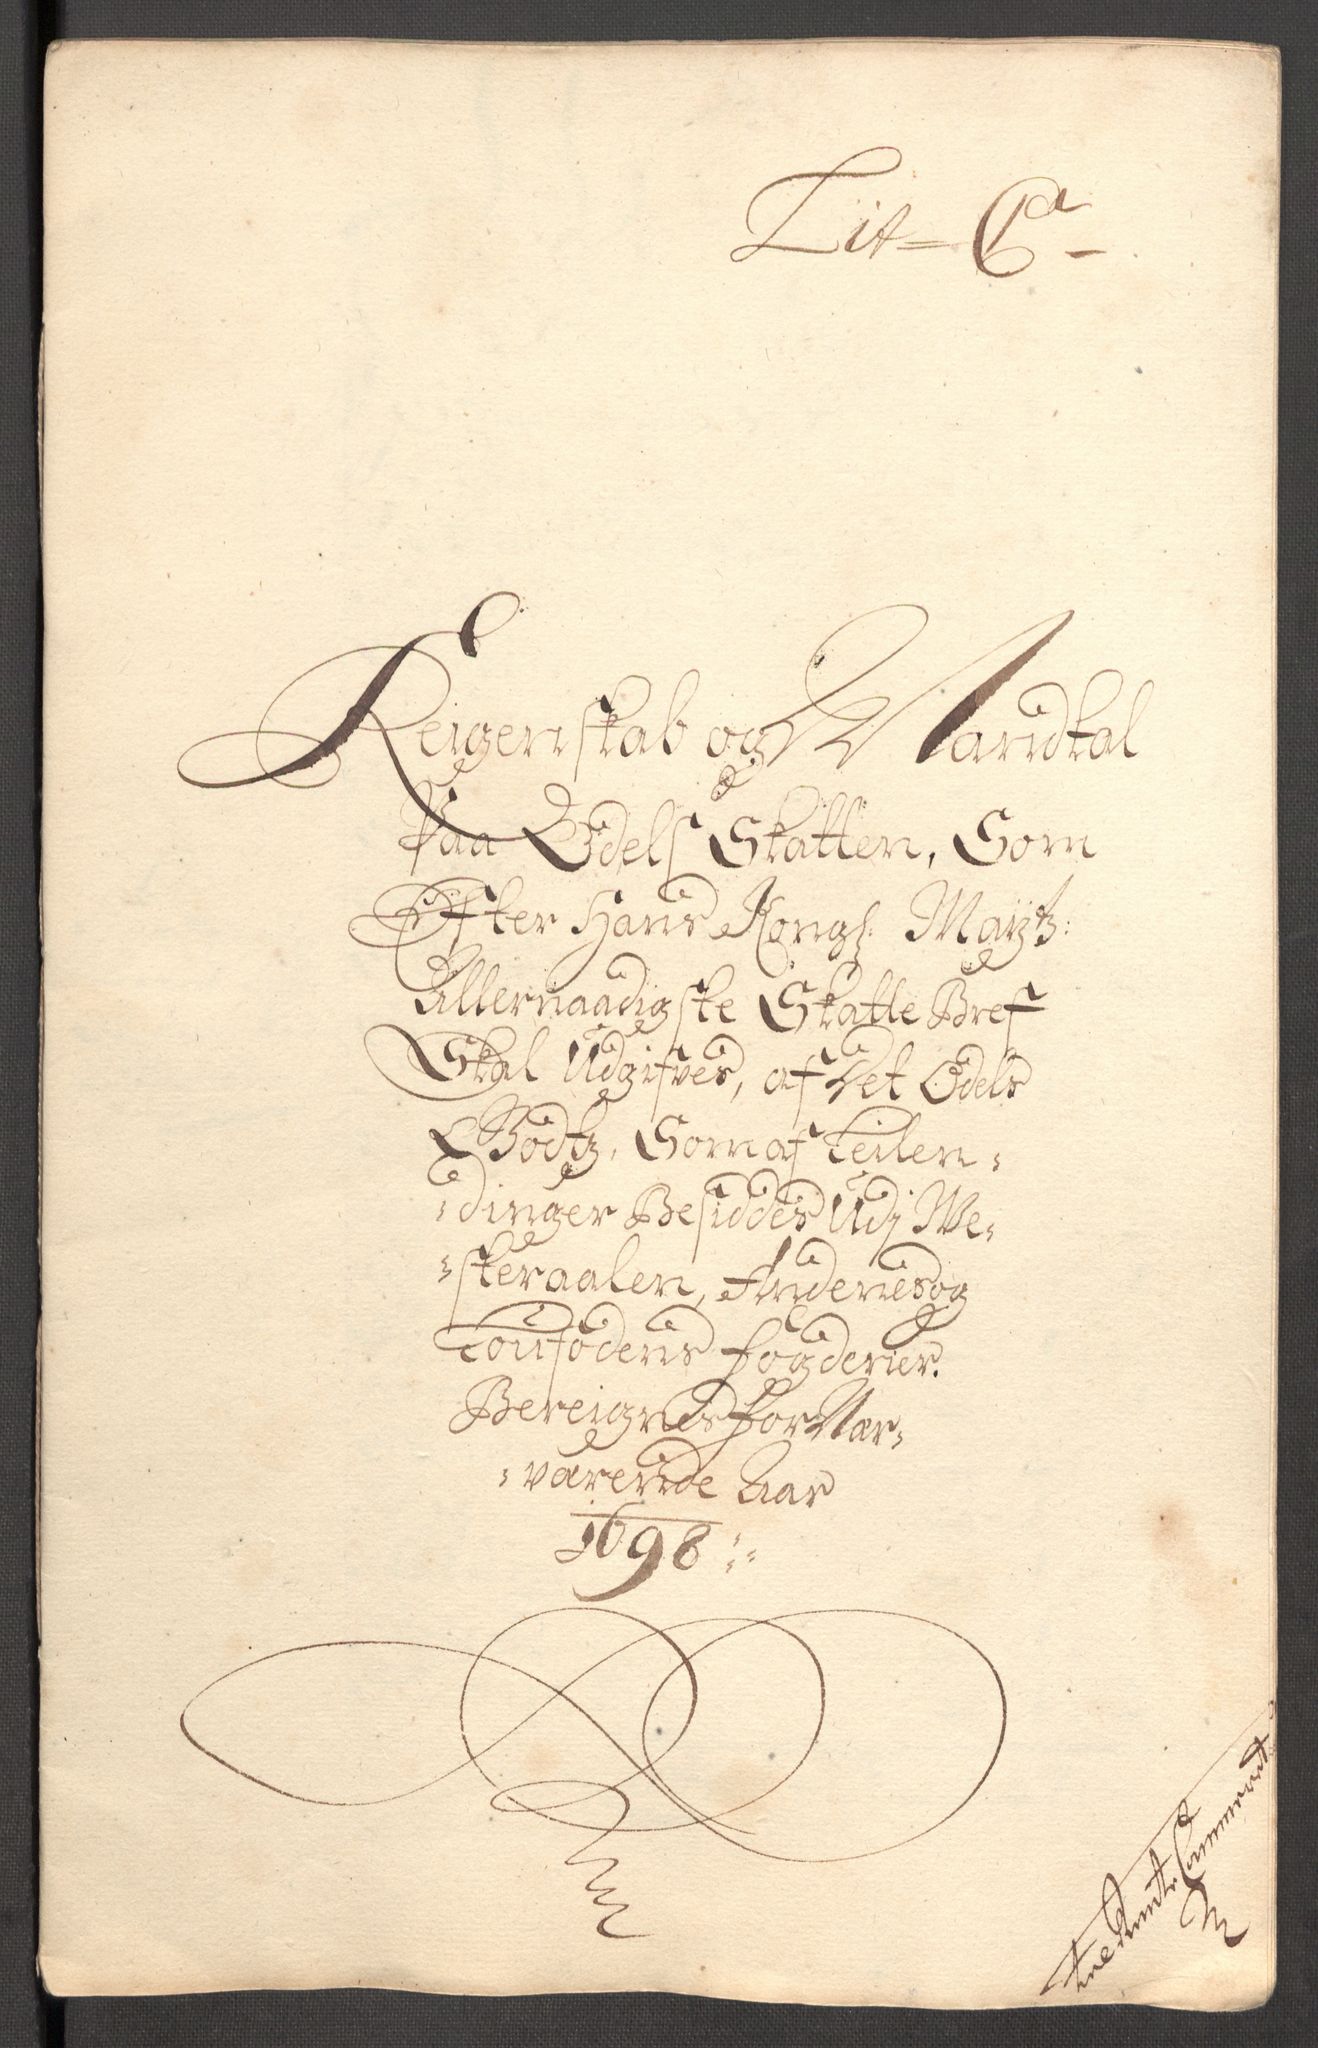 Lit = C a -
Reigenskab og Mandtal
Paa Odels Skatten, Som
Efter Hans Kongl: Mayts:
Allernaadigste Skatte Bref
Skal Udgifves, af Det Odels
Godtz, Som af Teilen=
=dinger Besiddes Udj We=
=steraalen, Andenes og
fogderier.
Bereignes for Nær=
=værende Aar
1698